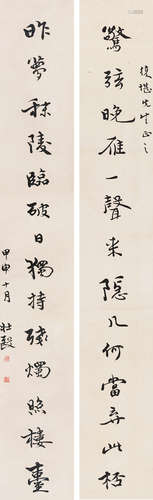 先生正之
驚弦晚雁一聲来隱几何當弃此杯
昨夢秣陵臨破日獨持殘燭照樓臺
甲申十月